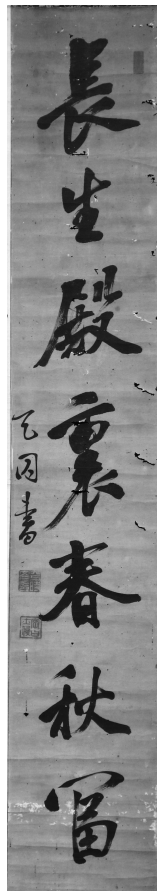 長生殿裏春秋富
天囚書